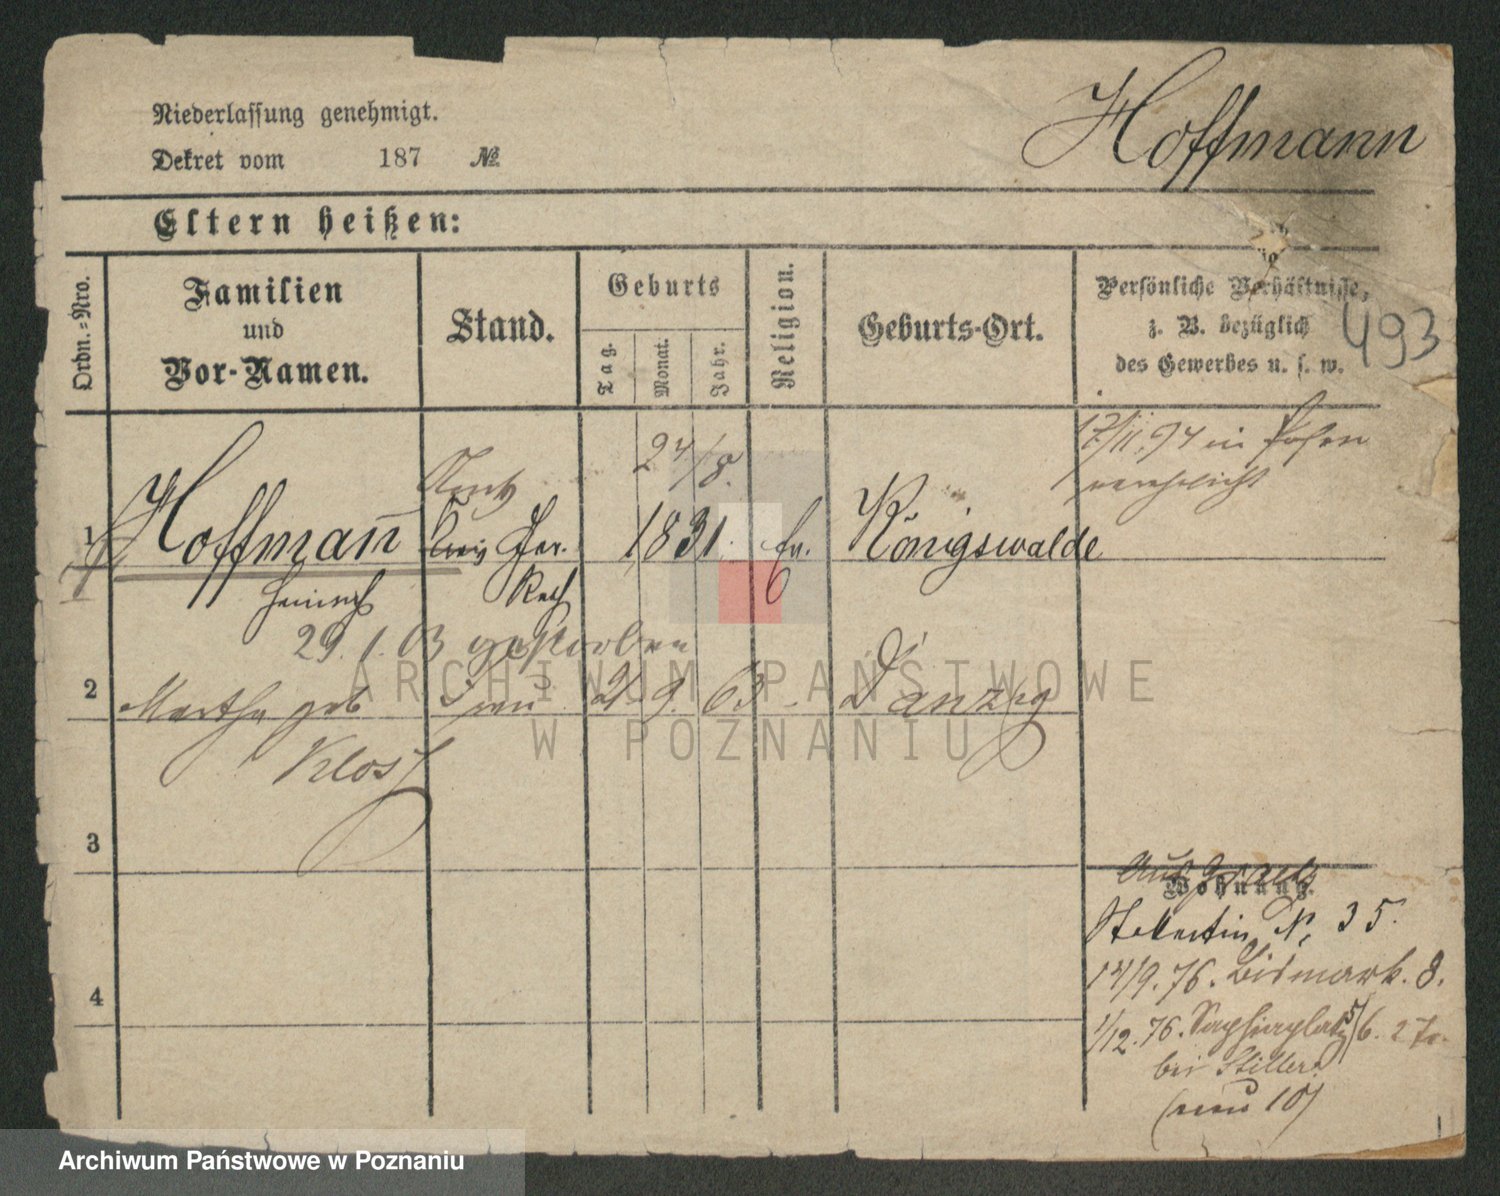 Niederlassung genehmigt.
Dekret vom 187 №
Hoffmann
Eltern heißen:
Ordn.=Nro.
Familien
und
Vor-Namen.
Stand.
Geburts
Tag.
Monat.
Jahr.
Religion.
Geburts-Ort.
Persönliche Verhältnisse,
z. B. bezüglich
des Gewerbes u. s. w.
493
17/11.94 in Posen
verehelicht
24/8.
1 Hoffmann̄ Ger. 1831. Ev. Königswalde
Heinrich Rath
29.1.03 gestorben
2 Martha geb Frau 21. 9. 63 Danzig
Klost
3
4
Wohnung.
St. Martin N. 35.
14/9. 76. Bismark. 8.
1/12. 76. Saphiaplatz 5/6. 2 Tr.
bei Stiller
(neu 10)
ARCHIWUM PAŃSTWOWE
W POZNANIU
Archiwum Państwowe w Poznaniu